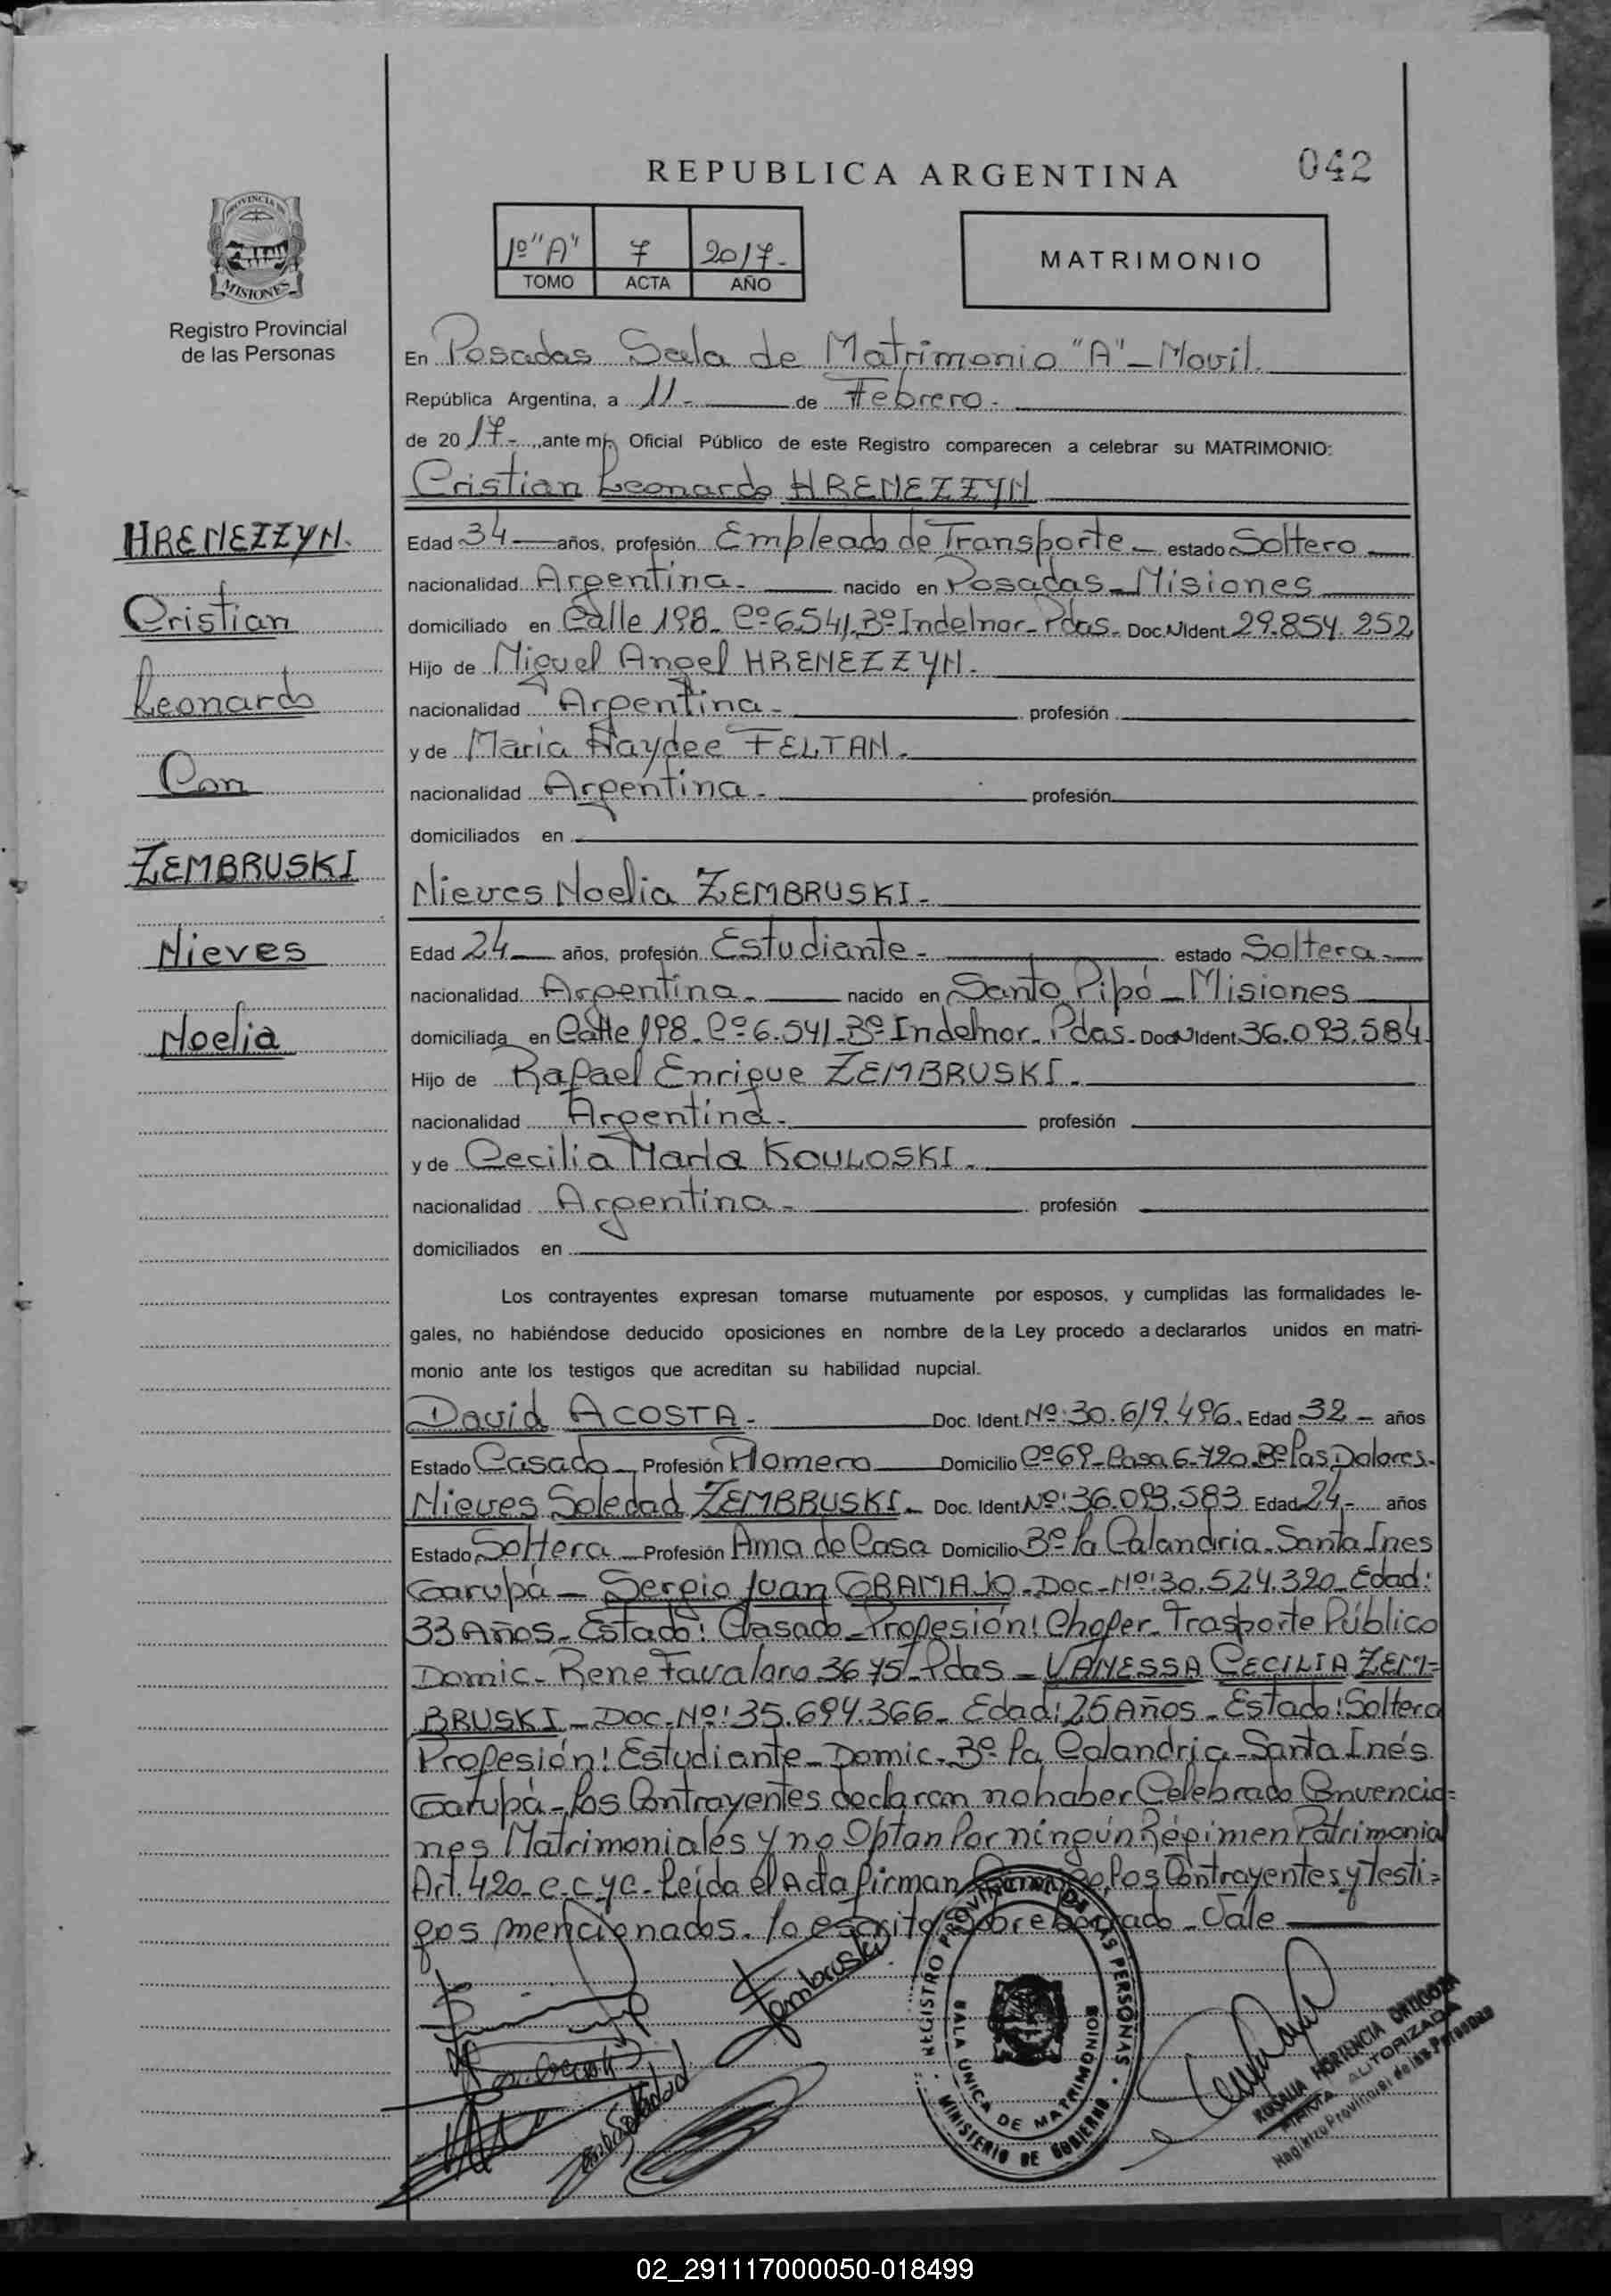 REPUBLICA ARGENTINA
042
PROVINCIA DE
MISIONES
Registro Provincial
de las Personas
1º "A" 7 2017.-
TOMO ACTA AÑO
MATRIMONIO
En Posadas Sala de Matrimonio "A" - Movil.
República Argentina, a 11.- de Febrero.-
de 2017.- ,ante mí, Oficial Público de este Registro comparecen a celebrar su MATRIMONIO:
Cristian Leonardo HRENEZZYN
Edad 34 años, profesión Empleado de Transporte.- estado Soltero
nacionalidad Argentina.- nacido en Posadas - Misiones
domiciliado en Calle 198. Cº 6.541. Bº Indelnor - Pdas. Doc. Nº Ident. 29.854.252
Hijo de Miguel Angel HRENEZZYN.
nacionalidad Argentina.- profesión
y de Maria Haydee FELTAN.
nacionalidad Argentina.- profesión
domiciliados en
Nieves Noelia ZEMBRUSKI.-
Edad 24 años, profesión Estudiante.- estado Soltera.-
nacionalidad Argentina.- nacido en Santo Pipó - Misiones
domiciliada en Calle 198. Cº 6.541. Bº Indelnor. Pdas. Doc. Nº Ident. 36.093.584.
Hijo de Rafael Enrique ZEMBRUSKI.
nacionalidad Argentina.- profesión
y de Cecilia Maria KOULOSKI.
nacionalidad Argentina.- profesión
domiciliados en
Los contrayentes expresan tomarse mutuamente por esposos, y cumplidas las formalidades le-
gales, no habiéndose deducido oposiciones en nombre de la Ley procedo a declararlos unidos en matri-
monio ante los testigos que acreditan su habilidad nupcial.
David ACOSTA.- Doc. Ident. Nº: 30.619.496. Edad 32 años
Estado Casado Profesión Plomero Domicilio Cº 69 - Casa 6.720 Bº Las Dolores.
Nieves Soledad ZEMBRUSKI. Doc. Ident. Nº: 36.093.583 Edad 24.- años
Estado Soltera Profesión Ama de Casa Domicilio Bº la Calandria - Santa Ines
Garupá - Sergio Juan GRAMAJO - Doc - Nº: 30.524.320 - Edad:
33 Años - Estado: Casado - Profesión: Chofer - Trasporte Público
Domic - Rene Favaloro 3675 - Pdas - VANESSA CECILIA ZEM=
BRUSKI - Doc - Nº: 35.694.366 - Edad: 25 Años - Estado: Soltera
Profesión: Estudiante - Domic - Bº la Calandria - Santa Inés
Garupá - los Contrayentes declaran no haber Celebrado Convencio=
nes Matrimoniales y no Optan Por ningún Régimen Patrimonial
Art. 420 - c.c. y c - Leída el Acta firman Conmigo, los Contrayentes y Testi=
gos mencionados. lo escrito sobre borrado - Vale
HRENEZZYN.
Cristian
Leonardo
Con
ZEMBRUSKI
Nieves
Noelia
Zembruski
Soledad
REGISTRO PROVINCIAL DE LAS PERSONAS
SALA UNICA DE MATRIMONIOS
MINISTERIO DE GOBIERNO
ROSALIA HORTENCIA
AUTORIZADA
Registro Provincial de las Personas
02_291117000050-018499